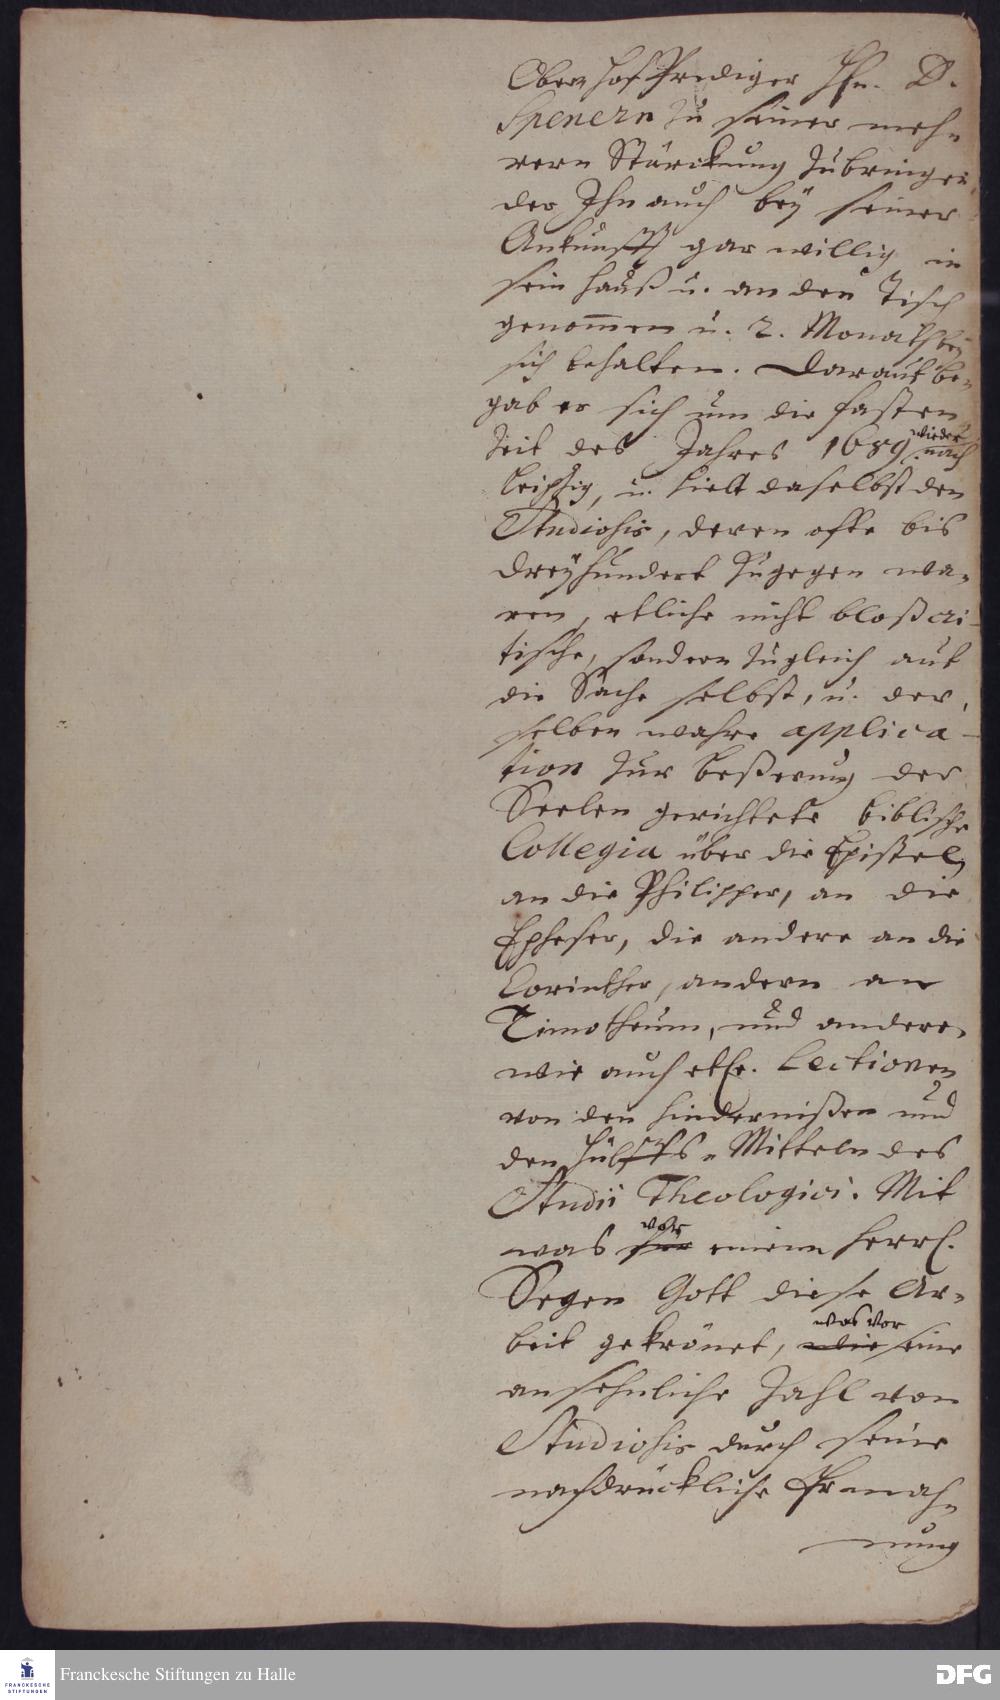 Ober Hof Prediger Hn. D.
Spenern zu seiner meh-
rern Stärckung zubringen
der Ihn auch bey seiner
Ankunfft gar willig in
sein Hauß u. an den Tisch
genom̄en u. 2. Monath bey
sich behalten. Darauf be-
gab er sich um die Fasten
Zeit des Jahres 1689 wieder nach
Leipzig, u. hielt daselbst den
Studiosis, deren offt bis
dreyhundert zugegen wa-
ren, etliche nicht bloß cri-
tische, sondern zugleich auf
die Sache selbst, u. der-
selben wahre applica-
tion zur Beßerung der
Seelen gerichtete biblische
Collegia über die Epistel
an die Philipper, an die
Epheser, die andere an die
Corinther, andern an
Timotheum, und andere,
wie auch etl. Lectionen
von den Hindernißen und
den Hülffs-Mitteln des
Studii Theologici. Mit
was für vor einem herrl.
Segen Gott diese Ar-
beit gekrönet, wie was vor eine
ansehnliche Zahl von
Studiosis durch seine
nachdrückliche Ermah-
nung
Franckesche Stiftungen zu Halle
FRANCKESCHE
STIFTUNGEN
DFG